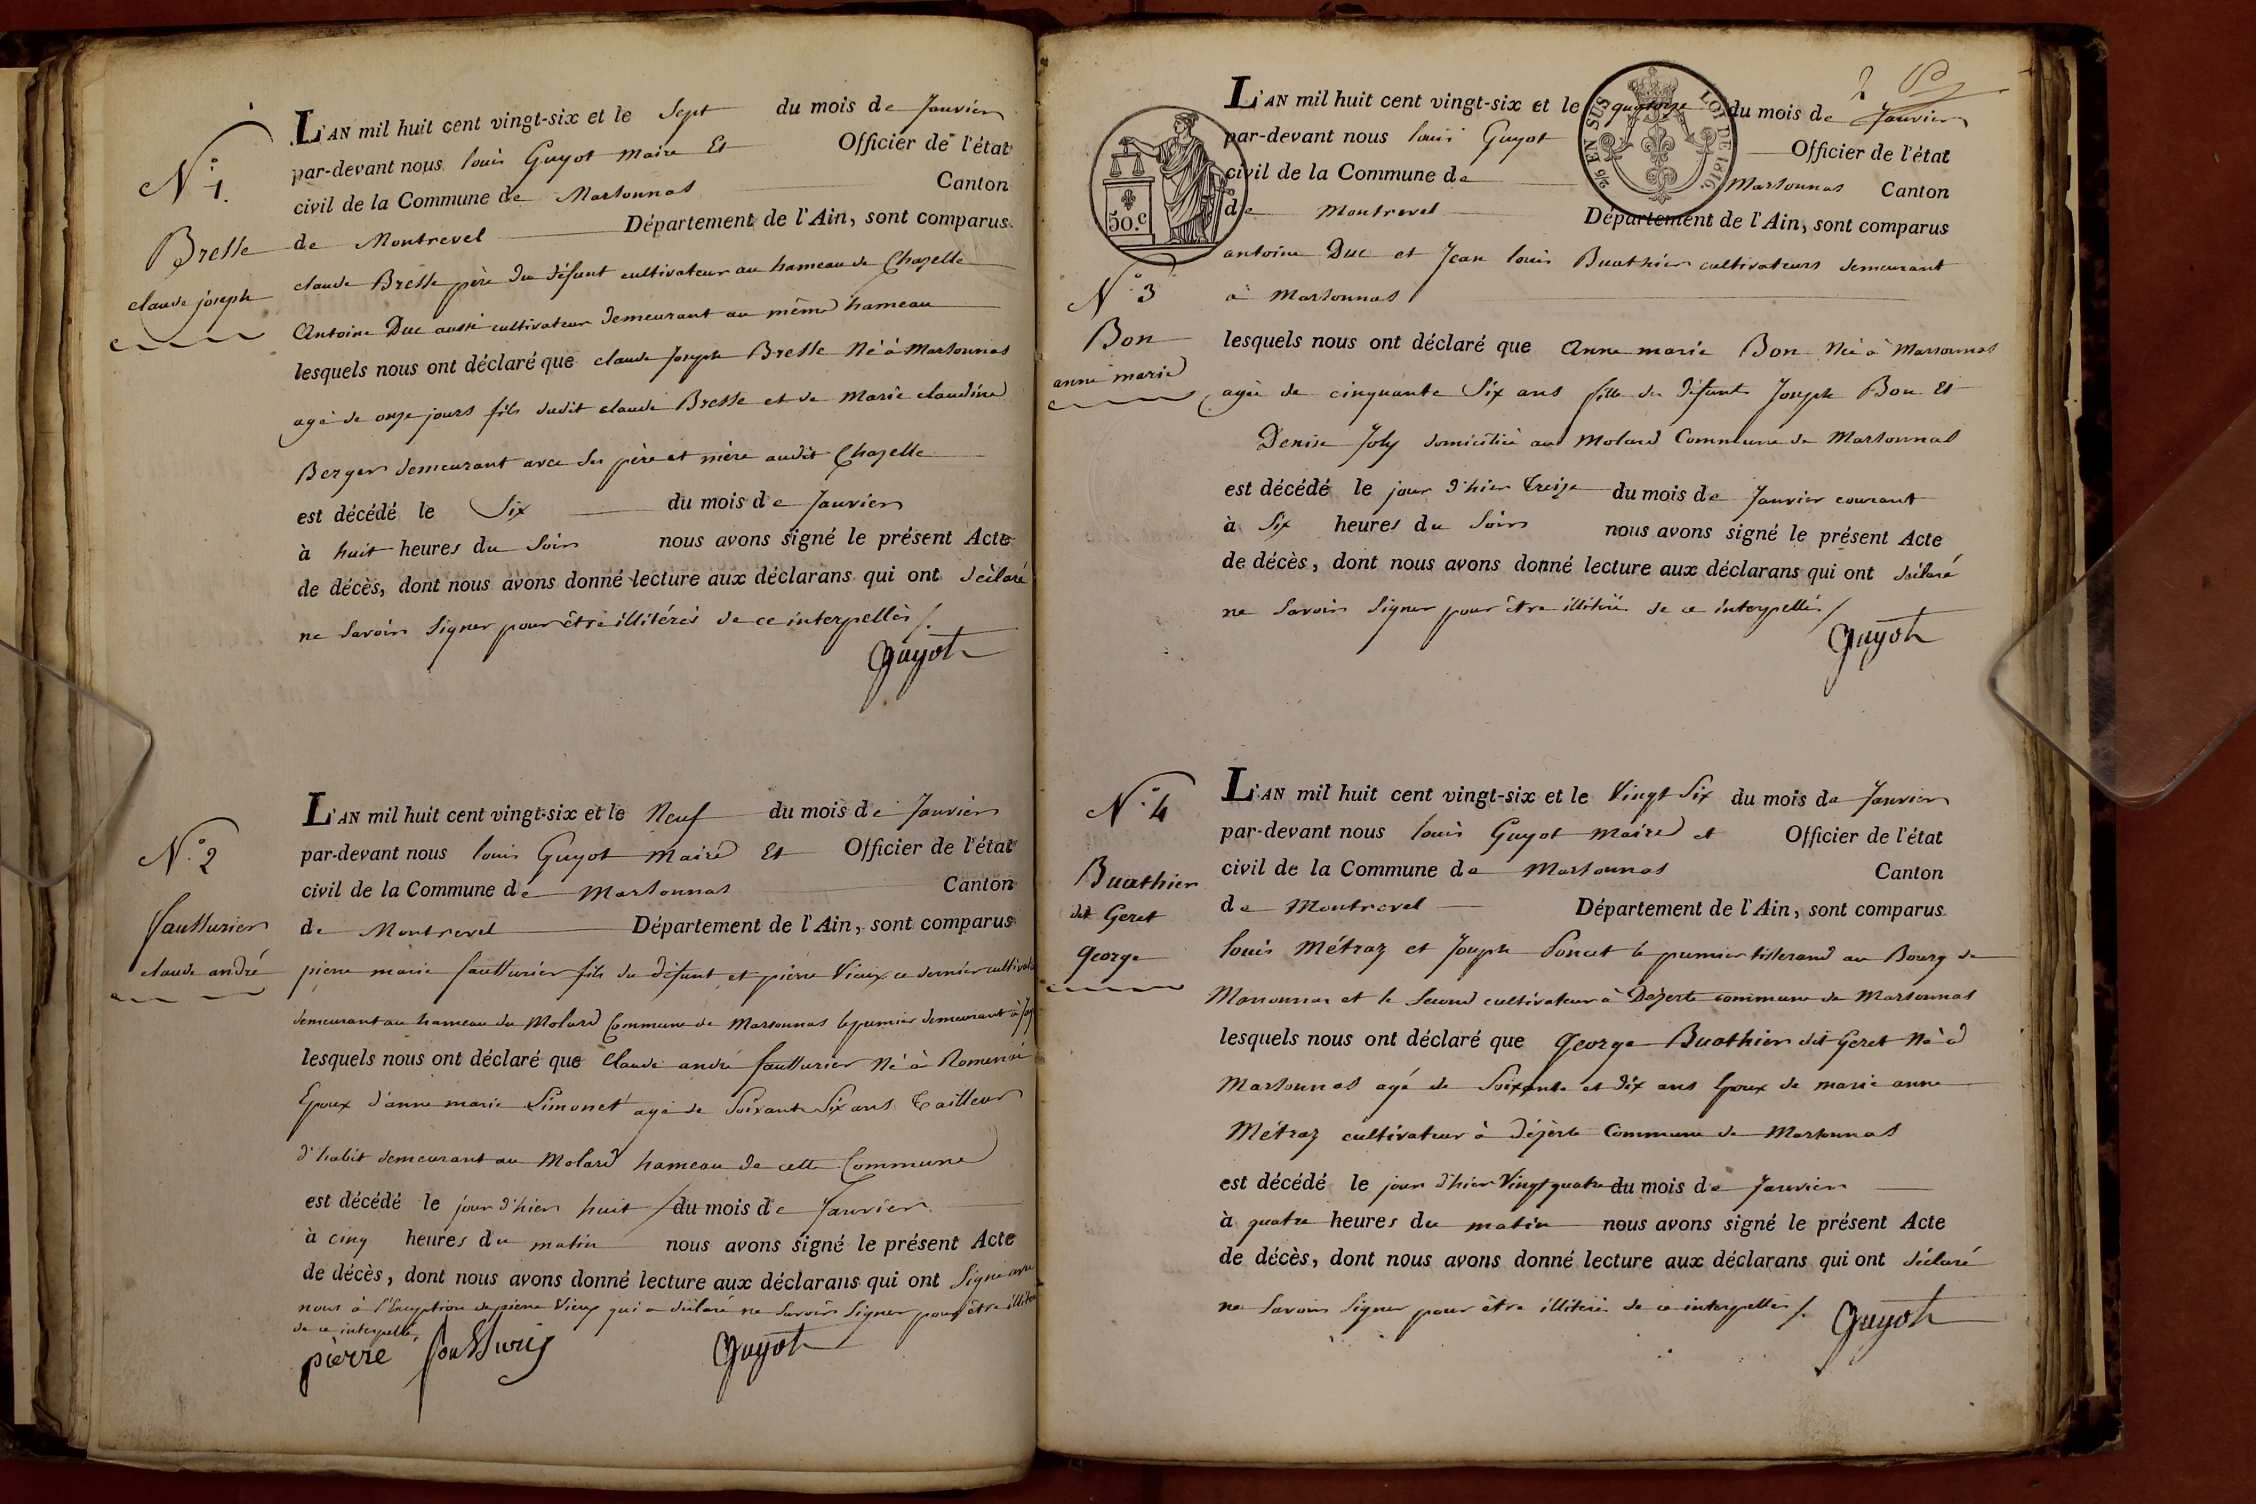 N.o 1.
Bresse
claude joseph
L'AN mil huit cent vingt-six et le Sept du mois de Janvier
par-devant nous louis Guyot maire Et Officier de l'état
civil de la Commune de Marsonnas Canton
de Montrevel Département de l'Ain, sont comparus
claude Bresse père du défunt cultivateur au hameau de Chazelle
Antoine Duc aussi cultivateur demeurant au même hameau
lesquels nous ont déclaré que claude Joseph Bresse Né à Marsonnas
agé de onze jours fils dudit claude Bresse et de Marie claudine
Berger demeurant avec ses père et mère audit Chazelle
est décédé le Six du mois de Janvier
à huit heures du Soir nous avons signé le présent Acte
de décès, dont nous avons donné lecture aux déclarans qui ont déclaré
ne Savoir Signer pour être illitérés de ce interpellés /.
Guyot
N.o 2
fautturier
claude andré
L'AN mil huit cent vingt-six et le Neuf du mois de Janvier
par-devant nous louis Guyot maire Et Officier de l'état
civil de la Commune de Marsonnas Canton
de Montrevel Département de l'Ain, sont comparus
pierre marie fautturier fils du défunt et pierre Vieux ce dernier
demeurant au hameau du Molard Commune de Marsonnas le premier demeurant à
lesquels nous ont déclaré que Claude andré fautturier Né à Romenai
Epoux d'anne marie Simonet agé de Soixante Six ans Tailleur
d'habit demeurant au Molard hameau de cette Commune
est décédé le jour d'hier huit du mois de Janvier
à cinq heures du matin nous avons signé le présent Acte
de décès, dont nous avons donné lecture aux déclarans qui ont Signé avec
nous à l'Exception de pierre Vieux qui a déclaré ne Savoir Signer pour être
de ce interpellé
pièrre Guyot
2
50.c
EN SUS LOI DE 1816
N.o 3
Bon
anne marie
L'AN mil huit cent vingt-six et le quatorze du mois de Janvier
par-devant nous louis Guyot Officier de l'état
civil de la Commune de Marsonnas Canton
de Montrevel Département de l'Ain, sont comparus
antoine Duc et Jean louis Buathier cultivateurs demeurant
à Marsonnas
lesquels nous ont déclaré que Anne marie Bon Née à Marsonnas
agée de cinquante Six ans fille de défunts Joseph Bon Et
Denise Joly domiciliée au Molard Commune de Marsonnas
est décédé le jour d'hier Treize du mois de Janvier courant
à Six heures du Soir nous avons signé le présent Acte
de décès, dont nous avons donné lecture aux déclarans qui ont déclaré
ne Savoir Signer pour être illitérés de ce interpellés /
Guyot
N.o 4
Buathier
dit Geret
George
L'AN mil huit cent vingt-six et le Vingt Six du mois de Janvier
par-devant nous louis Guyot maire et Officier de l'état
civil de la Commune de Marsonnas Canton
de Montrevel Département de l'Ain, sont comparus
louis Métraz et Joseph Poncet le premier tisserand au Bourg de
Marsonnas et le Second cultivateur à Dézerte commune de Marsonnas
lesquels nous ont déclaré que George Buathier dit Geret Né à
Marsonnas agé de Soixante et dix ans Epoux de marie anne
Métraz cultivateur à dézerte Commune de Marsonnas
est décédé le jour d'hier Vingt quatre du mois de Janvier
à quatre heures du matin nous avons signé le présent Acte
de décès, dont nous avons donné lecture aux déclarans qui ont déclaré
ne Savoir Signer pour être illiterés de ce interpellés /.
Guyot